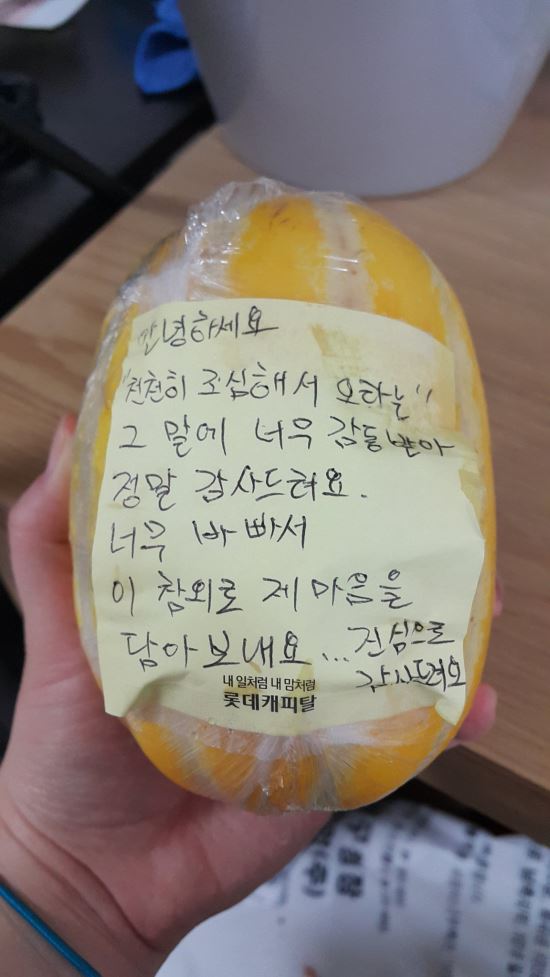 안녕하세요
"천천히 조심해서 오라는"
그 말에 너무 감동받아
정말 감사드려요.
너무 바빠서
이 참외로 제 마음을
담아보내요... 진심으로
감사드려요
내 일처럼 내 맘처럼
롯데캐피탈